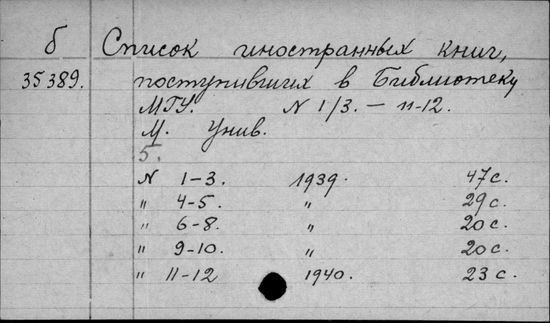 б Список иностранных книг,
35389. поступивших в Библиотеку
МГУ. N 1/3. — 11-12.
М. Унив.
5.
N 1-3. 1939. 47 с.
" 4-5. " 29 с.
" 6-8. " 20 с.
" 9-10. " 20 с.
" 11-12 1940. 23 с.